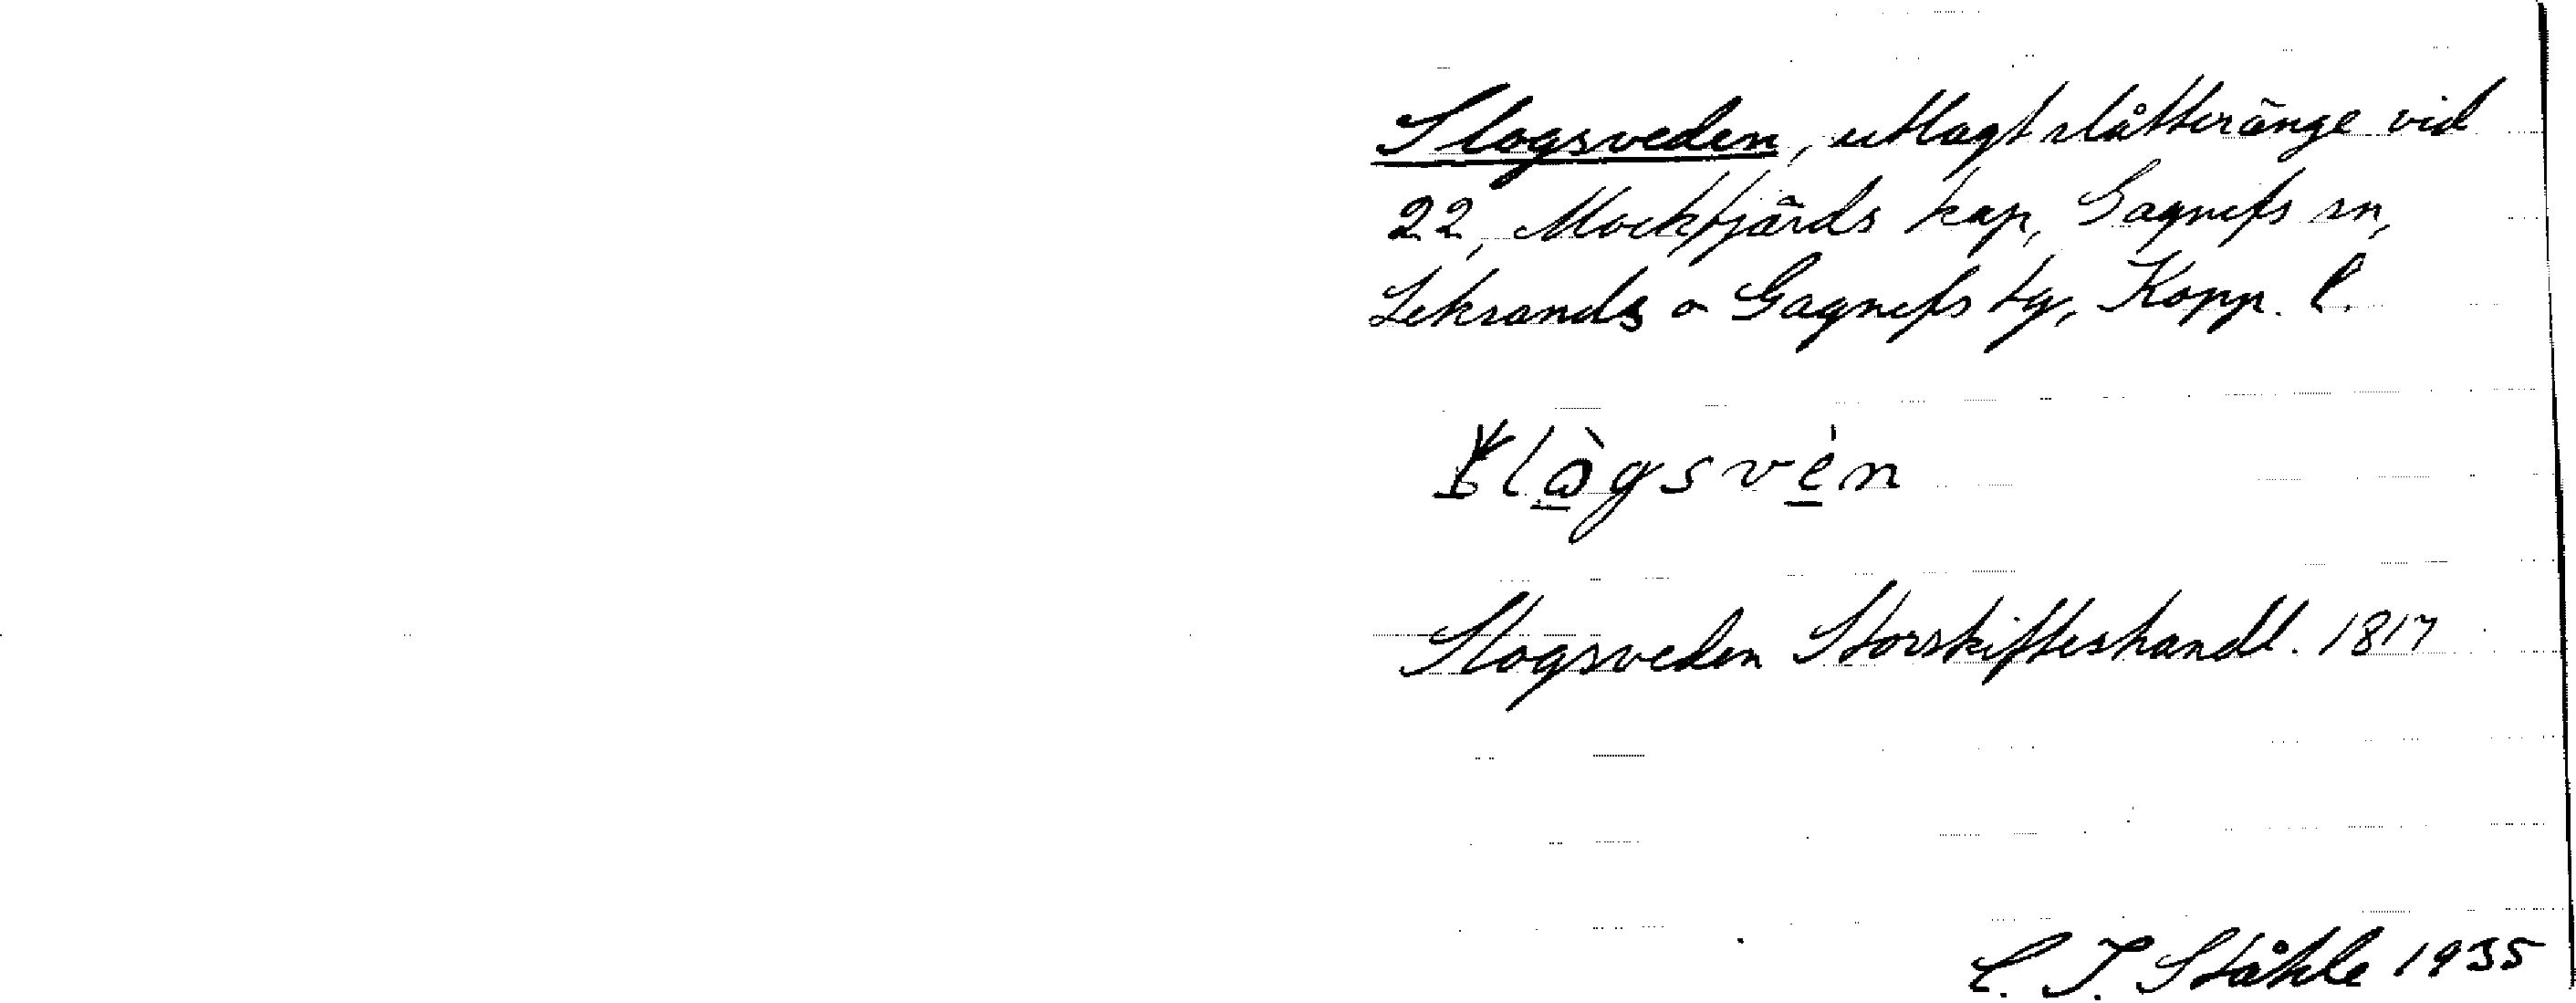 Slogsveden, utlagt slåtteränge vid
22, Mockfjärds kap, Gagnefs sn,
Leksands o Gagnefs tg, Kopp. l.
slògsvèn
Slogsveden Storskifteshandl. 1817
C. I. Ståhle 1935